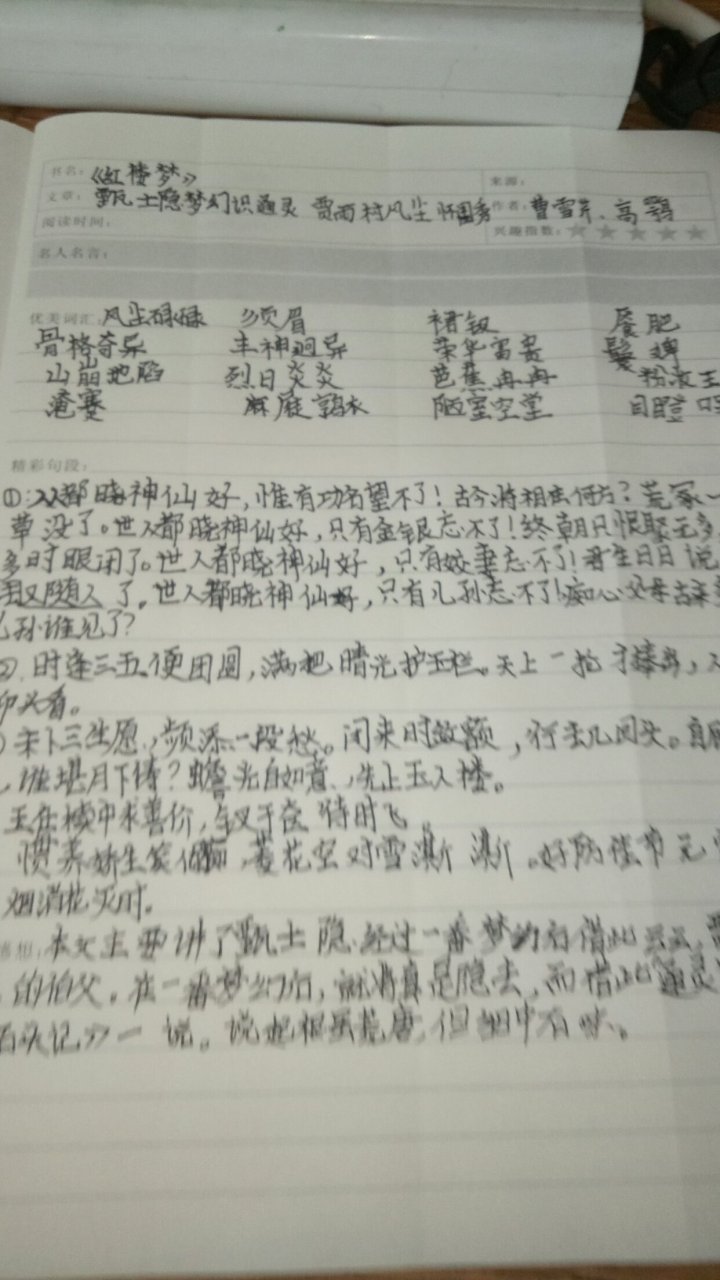 书名：《红楼梦》 来源：
文章：甄士隐梦幻识通灵 贾雨村风尘怀闺秀 作者：曹雪芹、高鹗
阅读时间： 兴趣指数：
名人名言：
优美词汇：风尘碌碌 须眉 裙钗 餍肥
骨格奇异 丰神迥异 荣华富贵
山崩地陷 烈日炎炎 芭蕉冉冉
淹蹇 陋室空堂 目瞪口
精彩句段：
①：人都晓神仙好，惟有功名望不了！古今将相在何方？荒冢一
草没了。世人都晓神仙好，只有金银忘不了！终朝只恨聚无多
多时眼闭了。世人都晓神仙好，只有姣妻忘不了！君生日日说
又随人了。世人都晓神仙好，只有儿孙忘不了！痴心父母古来
孙谁见了？
时逢三五便团圆，满把晴光护玉栏。天上一轮才捧出，人
仰头看。
未卜三生愿，频添一段愁。闷来时敛额，行去几回头。自顾
，谁堪月下俦？蟾光自如意，先上玉人楼。
玉在椟中求善价，钗于奁 待时飞。
惯养娇生笑你痴，菱花空对雪澌澌。好防佳节元
烟消花灭时。
感想：本文主要讲了甄士隐经过一番梦幻后借此云云，
的伯父。在一番梦幻后，就将真是隐去，而借此通灵
石头记》一说。说起根虽荒唐，但细中有味。